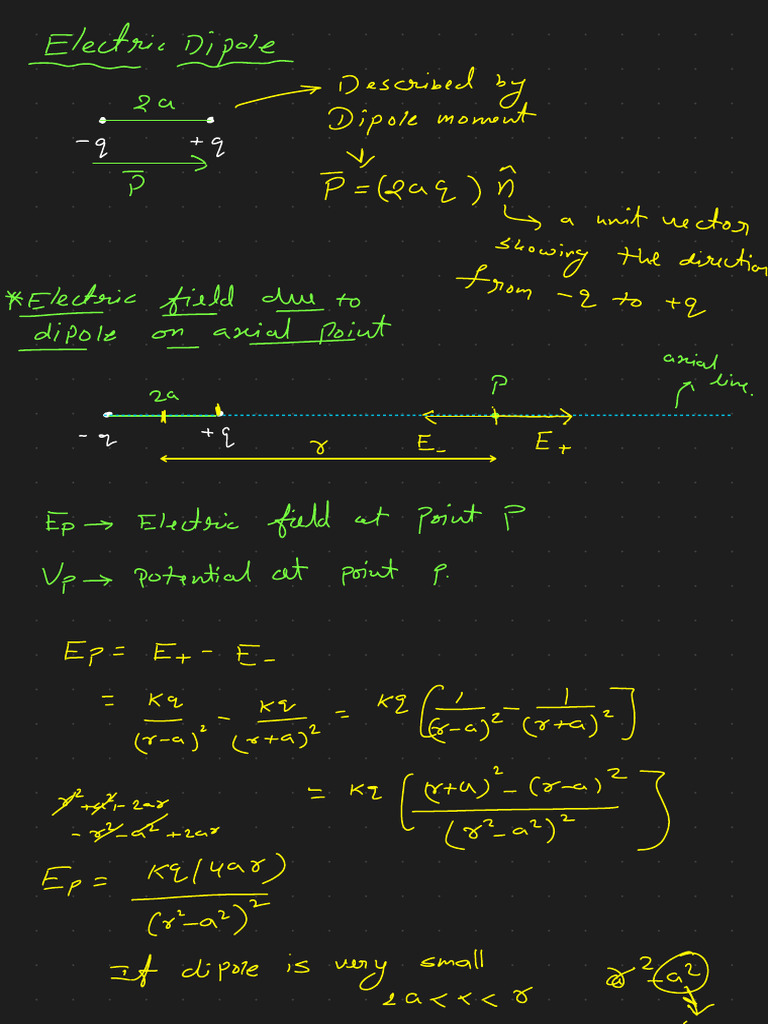 Electric Dipole
2a
-q +q
P̅
Described by
Dipole moment
P̅ = (2aq) n̂
a unit vector
showing the direction
from -q to +q
*Electric field due to
dipole on axial point
2a P axial
line.
-q +q r E₋ E₊
Ep → Electric field at point P
Vp → Potential at point P.
Ep = E₊ - E₋
= Kq/(r-a)² - Kq/(r+a)² = Kq [1/(r-a)² - 1/(r+a)²]
= Kq [((r+a)² - (r-a)²)/(r²-a²)²]
r²+a²+2ar
-r²-a²+2ar
Ep = Kq(4ar)/(r²-a²)²
If dipole is very small
2a<<<r
r²-a²